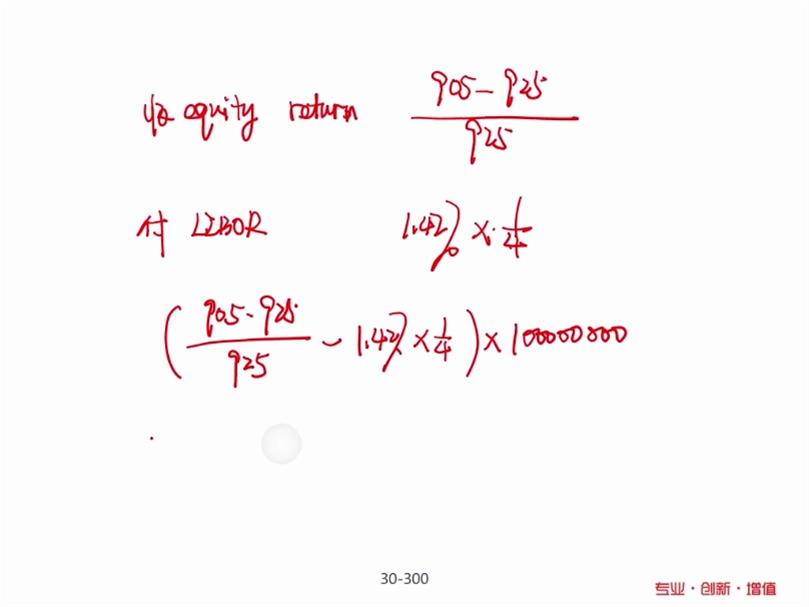 收 equity return (905-925)/925
付 LIBOR 1.42% × 1/4
((905-925)/925 - 1.42% × 1/4) × 100000000
30-300
专业·创新·增值